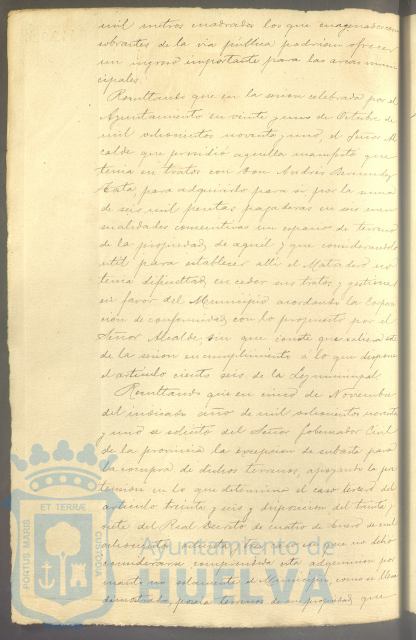 mil metros cuadrados los que enagenados como
sobrantes de la via pública podrian ofrecer
un ingreso importante para las arcas muni
cipales.
Resultando que en la sesion celebrada por el
Ayuntamiento en veinte y uno de Octubre de
mil ochocientos noventa y uno, el Señor Al
calde que presidió aquella manifestó que
tenia en tratos con Don Andrés
Mata, para adquirirlo para si por la suma
de seis mil pesetas pagaderas en seis men
sualidades consecutivas un espacio de terreno
de la propiedad de aquel y que considerandolo
util para establecer alli el Matadero no
tenia dificultad en ceder sus tratos y gestiones
en favor del Municipio acordando la Corpora
cion de conformidad con lo propuesto por el
Señor Alcalde, sin que conste que saliera este
de la sesion en cumplimiento á lo que dispone
el artículo ciento seis de la Ley municipal.
Resultando que en cinco de Noviembre
del indicado año de mil ochocientos noventa
y uno se solicitó del Señor Gobernador Civil
de la provincia la excepcion de subasta para
la compra de dichos terrenos, apoyando la pre
tension en lo que determina el caso tercero del
artículo treinta y seis y disposicion del treinta y
siete del Real Decreto de cuatro de Enero de mil
ochocientos ochenta y tres que no debió
considerarse comprendida esta adquisicion por
cuanto no solamente el Municipio, como se lleva
demostrado, poseia terrenos de su propiedad que
PORTUS MARIS
ET TERRÆ
CUSTODIA
Ayuntamiento de
HUELVA